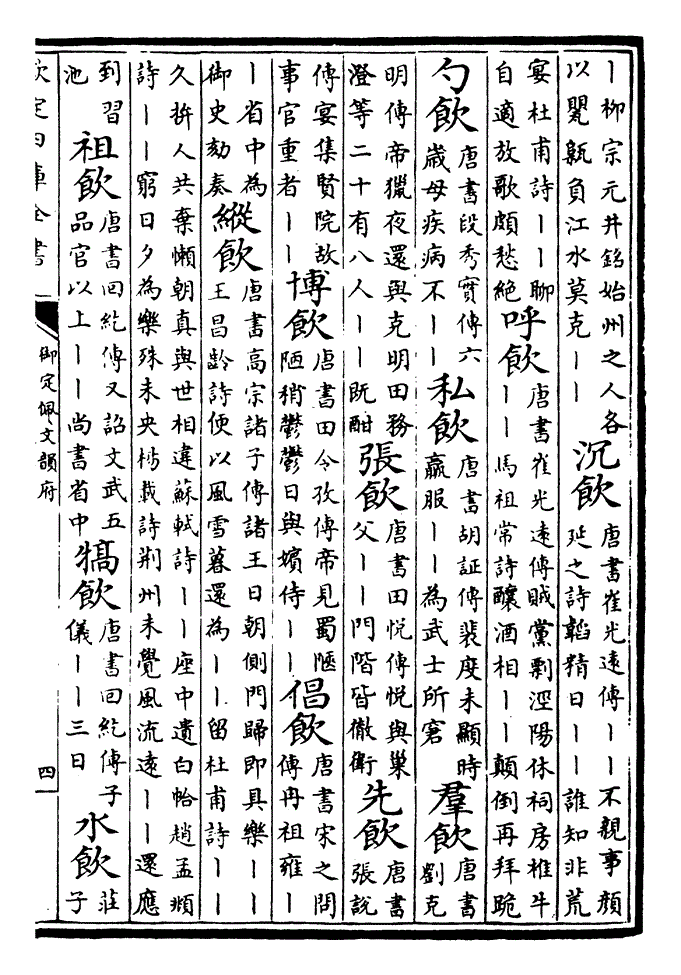 ｜柳宗元井銘始州之人各以甖缻負江水莫克｜｜沉飲唐書崔光遠傳｜｜不親事顏延之詩韜精日｜｜誰知非荒
宴杜甫詩｜｜聊自適放歌頗愁絶呼飲唐書崔光遠傳賊黨剽涇陽休祠房椎牛｜｜馬祖常詩釀酒相｜｜顛倒再拜跪
勺飲唐書段秀實傳六歲母疾病不｜｜私飲唐書胡証傳裴度未顯時羸服｜｜為武士所窘羣飲唐書劉克
明傳帝獵夜還與克明田務澄等二十有八人｜｜既酣張飲唐書田悅傳悅與巢父｜｜門階皆徹衛先飲唐書張說
傳宴集賢院故事官重者｜｜博飲唐書田令孜傳帝見蜀陿陋稍鬱鬱日與嬪侍｜｜倡飲唐書宋之問傳冉祖雍｜
｜省中為御史劾奏縱飲唐書高宗諸子傳諸王日朝側門歸即具樂｜｜王昌齡詩使以風雪暮還為｜｜留杜甫詩｜｜
久拚人共棄懶朝真與世相違蘇軾詩｜｜座中遺白帢趙孟頫詩｜｜窮日夕為樂殊未央楊載詩荆州未覺風流遠｜｜還應
到習池祖飲唐書回紇傳又詔文武五品官以上｜｜尚書省中犒飲唐書回紇傳子儀｜｜三日水飲莊子
欽定四庫全書
御定佩文韻府
四